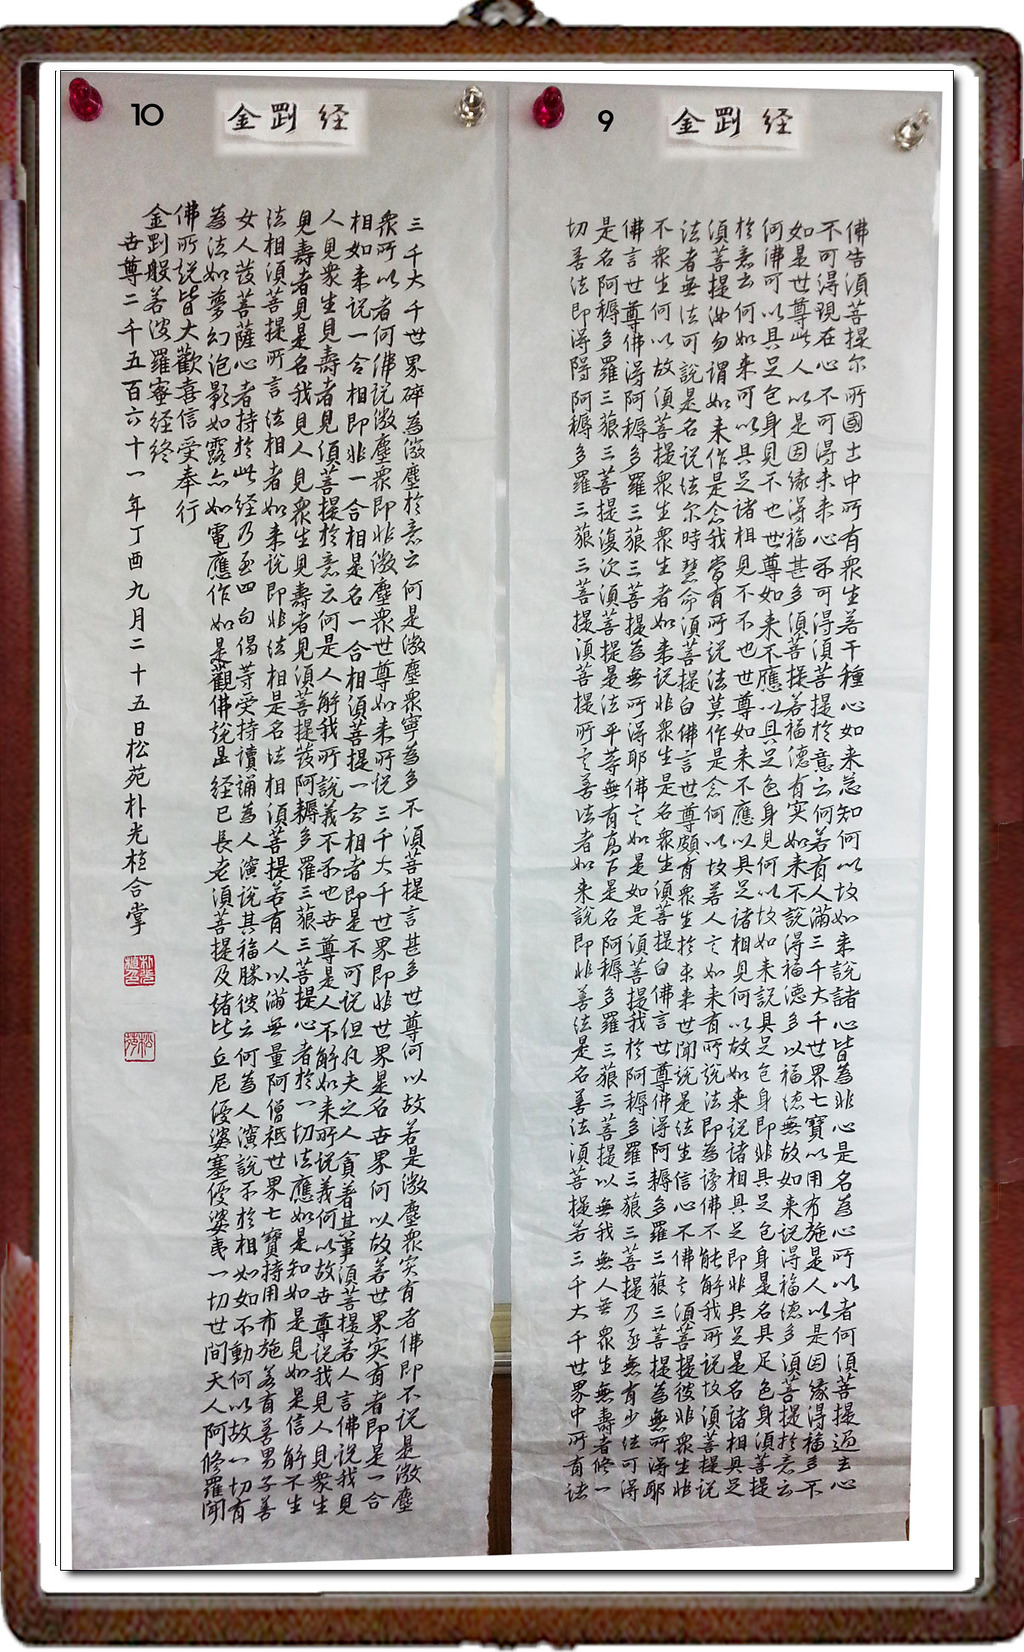 9
金剛経
佛告須菩提尔所國土中所有衆生若干種心如来悉知何以故如来說諸心皆為非心是名為心所以者何須菩提過去心
不可得現在心不可得未来心不可得須菩提於意云何若有人滿三千大千世界七寶以用布施是人以是因緣得福多不
如是世尊此人以是因緣得福甚多須菩提若福德有实如来不說得福德多以福德無故如来說得福德多須菩提於意云
何佛可以具足色身見不也世尊如来不應以具足色身見何以故如来說具足色身即非具足色身是名具足色身須菩提
於意云何如来可以具足諸相見不不也世尊如来不應以具足諸相見何以故如来說諸相具足即非具足是名諸相具足
須菩提汝勿謂如来作是念我當有所說法莫作是念何以故若人言如来有所說法即為謗佛不能解我所說故須菩提說
法者無法可說是名說法尔時慧命須菩提白佛言世尊頗有衆生於未来世聞說是法生信心不佛言須菩提彼非衆生非
不衆生何以故須菩提衆生衆生者如来說非衆生是名衆生須菩提白佛言世尊佛得阿耨多羅三藐三菩提為無所得耶
佛言世尊佛得阿耨多羅三藐三菩提為無所得耶佛言如是如是須菩提我於阿耨多羅三藐三菩提乃至無有少法可得
是名阿耨多羅三藐三菩提復次須菩提是法平等無有高下是名阿耨多羅三藐三菩提以無我無人無衆生無壽者修一
切善法即得阿耨多羅三藐三菩提須菩提所言善法者如来說即非善法是名善法須菩提若三千大千世界中所有諸
10
金剛経
三千大千世界碎為微塵於意云何是微塵衆寧為多不須菩提言甚多世尊何以故若是微塵衆实有者佛即不说是微塵
衆所以者何佛说微塵衆即非微塵衆世尊如来所说三千大千世界即非世界是名世界何以故若世界实有者即是一合
相如来说一合相即非一合相是名一合相須菩提一合相者即是不可说但凡夫之人貪著其事須菩提若人言佛说我見
人見衆生見壽者見須菩提於意云何是人解我所說義不不也世尊是人不解如来所说義何以故世尊說我見人見衆生
見壽者見是名我見人見衆生見壽者見須菩提發阿耨多羅三藐三菩提心者於一切法應如是知如是見如是信解不生
法相須菩提所言法相者如来说即非法相是名法相須菩提若有人以滿無量阿僧祗世界七寶持用布施若有善男子善
女人發菩薩心者持於此経乃至四句偈等受持讀誦為人演说其福勝彼云何為人演說不於相如如不動何以故一切有
為法如夢幻泡影如露亦如電應作如是觀佛說是経已長老須菩提及諸比丘尼優婆塞優婆夷一切世間天人阿修羅聞
佛所說皆大歡喜信受奉行
金剛般若波羅蜜経終
世尊二千五百六十一年丁酉九月二十五日松苑朴光植合掌